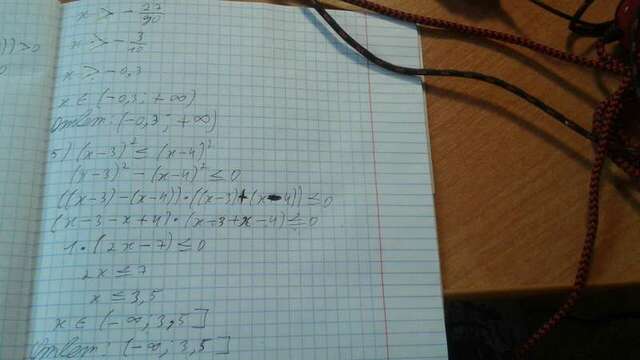 )) > 0
0
x > - 27/90
x > - 3/10
x > -0,3
x ∈ (-0,3; +∞)
Ответ: (-0,3; +∞)
5) (x-3)² ≤ (x-4)²
(x-3)² - (x-4)² ≤ 0
((x-3)-(x-4))·((x-3)+(x-4)) ≤ 0
(x-3-x+4)·(x-3+x-4) ≤ 0
1·(2x-7) ≤ 0
2x ≤ 7
x ≤ 3,5
x ∈ (-∞; 3,5]
Ответ: (-∞; 3,5]